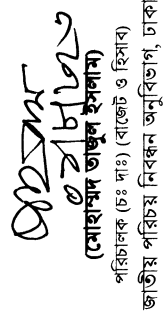 (মোহাম্মদ তাজুল ইসলাম)
পরিচালক (চঃ দাঃ) (বাজেট ও হিসাব)
জাতীয় পরিচয় নিবন্ধন অনুবিভাগ, ঢাকা